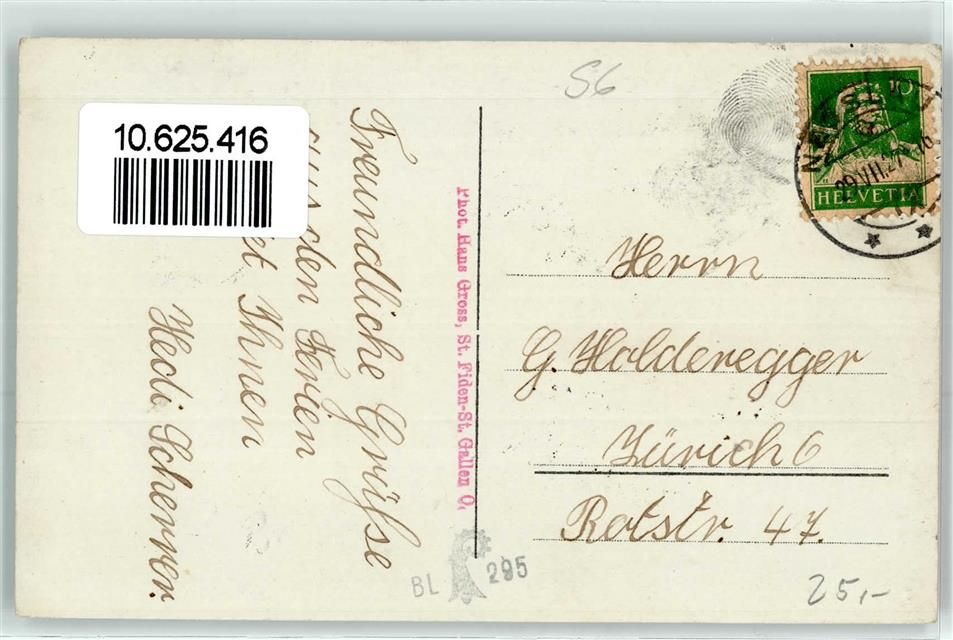 10.625.416
S6
Freundliche Grüsse
den Ferien
Ihnen
Hedi Scherrer.
Phot. Hans Gross, St. Fiden-St. Gallen O.
10
HELVETIA
29.VII.
Herrn
G. Holderegger
Zürich 6
Rotstr. 47.
BL 295
25,-